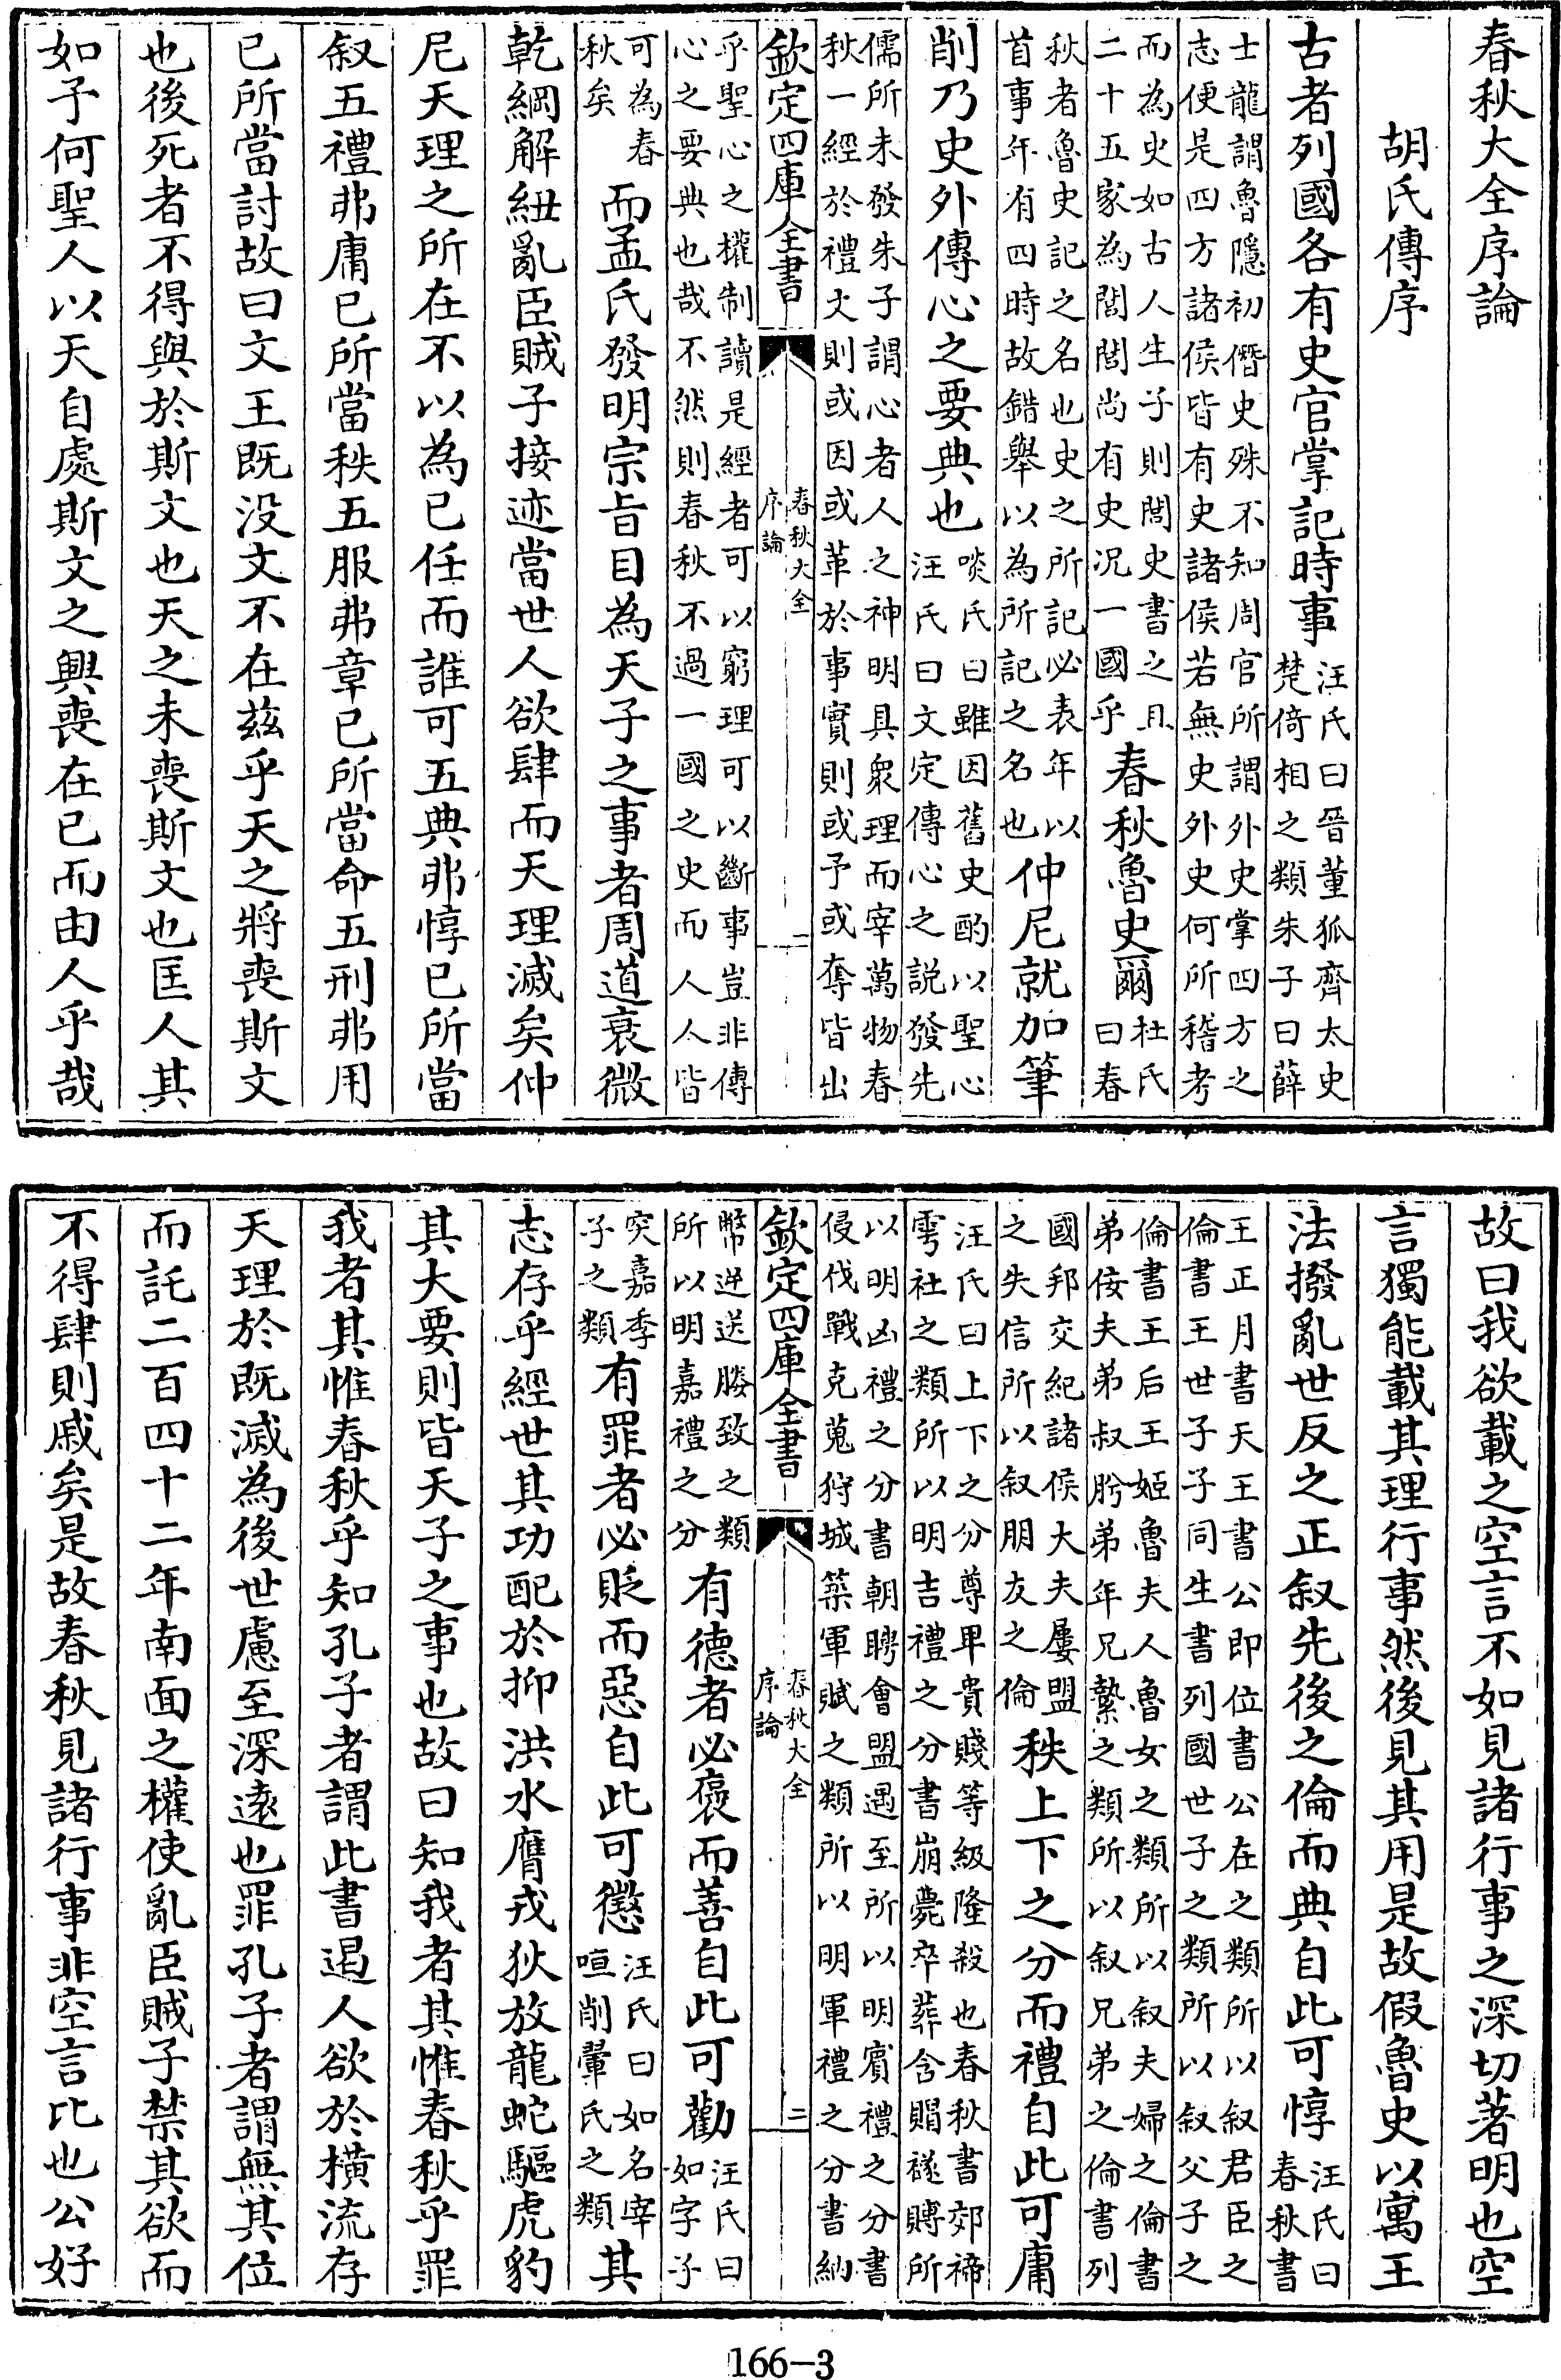 春秋大全序論
胡氏傳序
古者列國各有史官掌記時事汪氏曰晉董狐齊太史
楚倚相之類朱子曰薛
士龍謂魯隱初僭史殊不知周官所謂外史掌四方之
志便是四方諸侯皆有史諸侯若無史外史何所稽考
而為史如古人生子則閭史書之且
二十五家為閭閭尚有史況一國乎春秋魯史爾杜氏
曰春
秋者魯史記之名也史之所記必表年以
首事年有四時故錯舉以為所記之名也仲尼就加筆
削乃史外傳心之要典也啖氏曰雖因舊史酌以聖心
汪氏曰文定傳心之説發先
儒所未發朱子謂心者人之神明具衆理而宰萬物春
秋一經於禮文則或因或革於事實則或予或奪皆出
欽定四庫全書
春秋大全
序論
一
乎聖心之權制讀是經者可以窮理可以斷事豈非傳
心之要典也哉不然則春秋不過一國之史而人人皆
可為春
秋矣而孟氏發明宗旨目為天子之事者周道衰微
乾綱解紐亂臣賊子接迹當世人欲肆而天理滅矣仲
尼天理之所在不以為已任而誰可五典弗惇已所當
叙五禮弗庸已所當秩五服弗章已所當命五刑弗用
已所當討故曰文王既没文不在兹乎天之將喪斯文
也後死者不得與於斯文也天之未喪斯文也匡人其
如予何聖人以天自處斯文之興喪在已而由人乎哉
故曰我欲載之空言不如見諸行事之深切著明也空
言獨能載其理行事然後見其用是故假魯史以寓王
法撥亂世反之正叙先後之倫而典自此可惇汪氏曰
春秋書
王正月書天王書公即位書公在之類所以叙君臣之
倫書王世子子同生書列國世子之類所以叙父子之
倫書王后王姬魯夫人魯女之類所以叙夫婦之倫書
弟佞夫弟叔肸弟年兄縶之類所以叙兄弟之倫書列
國邦交紀諸侯大夫屢盟
之失信所以叙朋友之倫秩上下之分而禮自此可庸
汪氏曰上下之分尊卑貴賤等級隆殺也春秋書郊禘
雩社之類所以明吉禮之分書崩薨卒葬含賵襚賻所
以明凶禮之分書朝聘會盟遇至所以明賓禮之分書
侵伐戰克蒐狩城築軍賦之類所以明軍禮之分書納
欽定四庫全書
春秋大全
序論
二
幣逆送媵致之類
所以明嘉禮之分有德者必褒而善自此可勸汪氏曰
如字子
突嘉季
子之類有罪者必貶而惡自此可懲汪氏曰如名宰
咺削翬氏之類其
志存乎經世其功配於抑洪水膺戎狄放龍蛇驅虎豹
其大要則皆天子之事也故曰知我者其惟春秋乎罪
我者其惟春秋乎知孔子者謂此書遏人欲於横流存
天理於既滅為後世慮至深遠也罪孔子者謂無其位
而託二百四十二年南面之權使亂臣賊子禁其欲而
不得肆則戚矣是故春秋見諸行事非空言比也公好
166-3